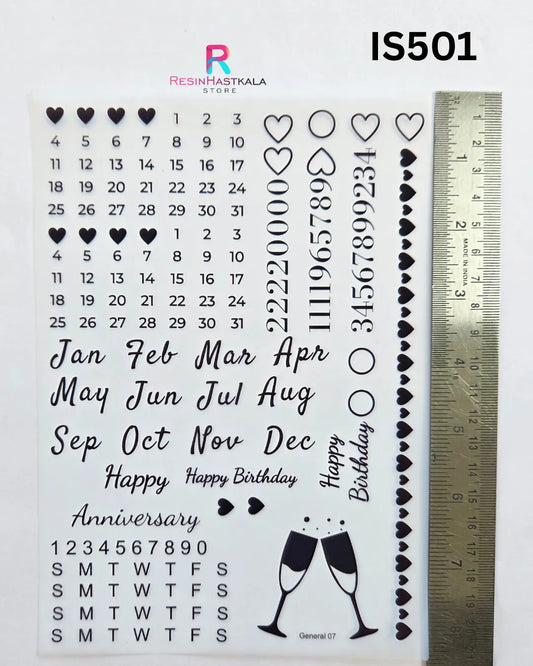 IS501
R
RESINHASTKALA
STORE
1 2 3
4 5 6 7 8 9 10
11 12 13 14 15 16 17
18 19 20 21 22 23 24
25 26 27 28 29 30 31
1 2 3
4 5 6 7 8 9 10
11 12 13 14 15 16 17
18 19 20 21 22 23 24
25 26 27 28 29 30 31
22220000
1111965789
345678999234
Jan Feb Mar Apr
May Jun Jul Aug
Sep Oct Nov Dec
Happy Happy Birthday
Happy
Birthday
Anniversary
1 2 3 4 5 6 7 8 9 0
S M T W T F S
S M T W T F S
S M T W T F S
S M T W T F S
General 07
MADE IN INDIA
1
2
3
4
5
6
7